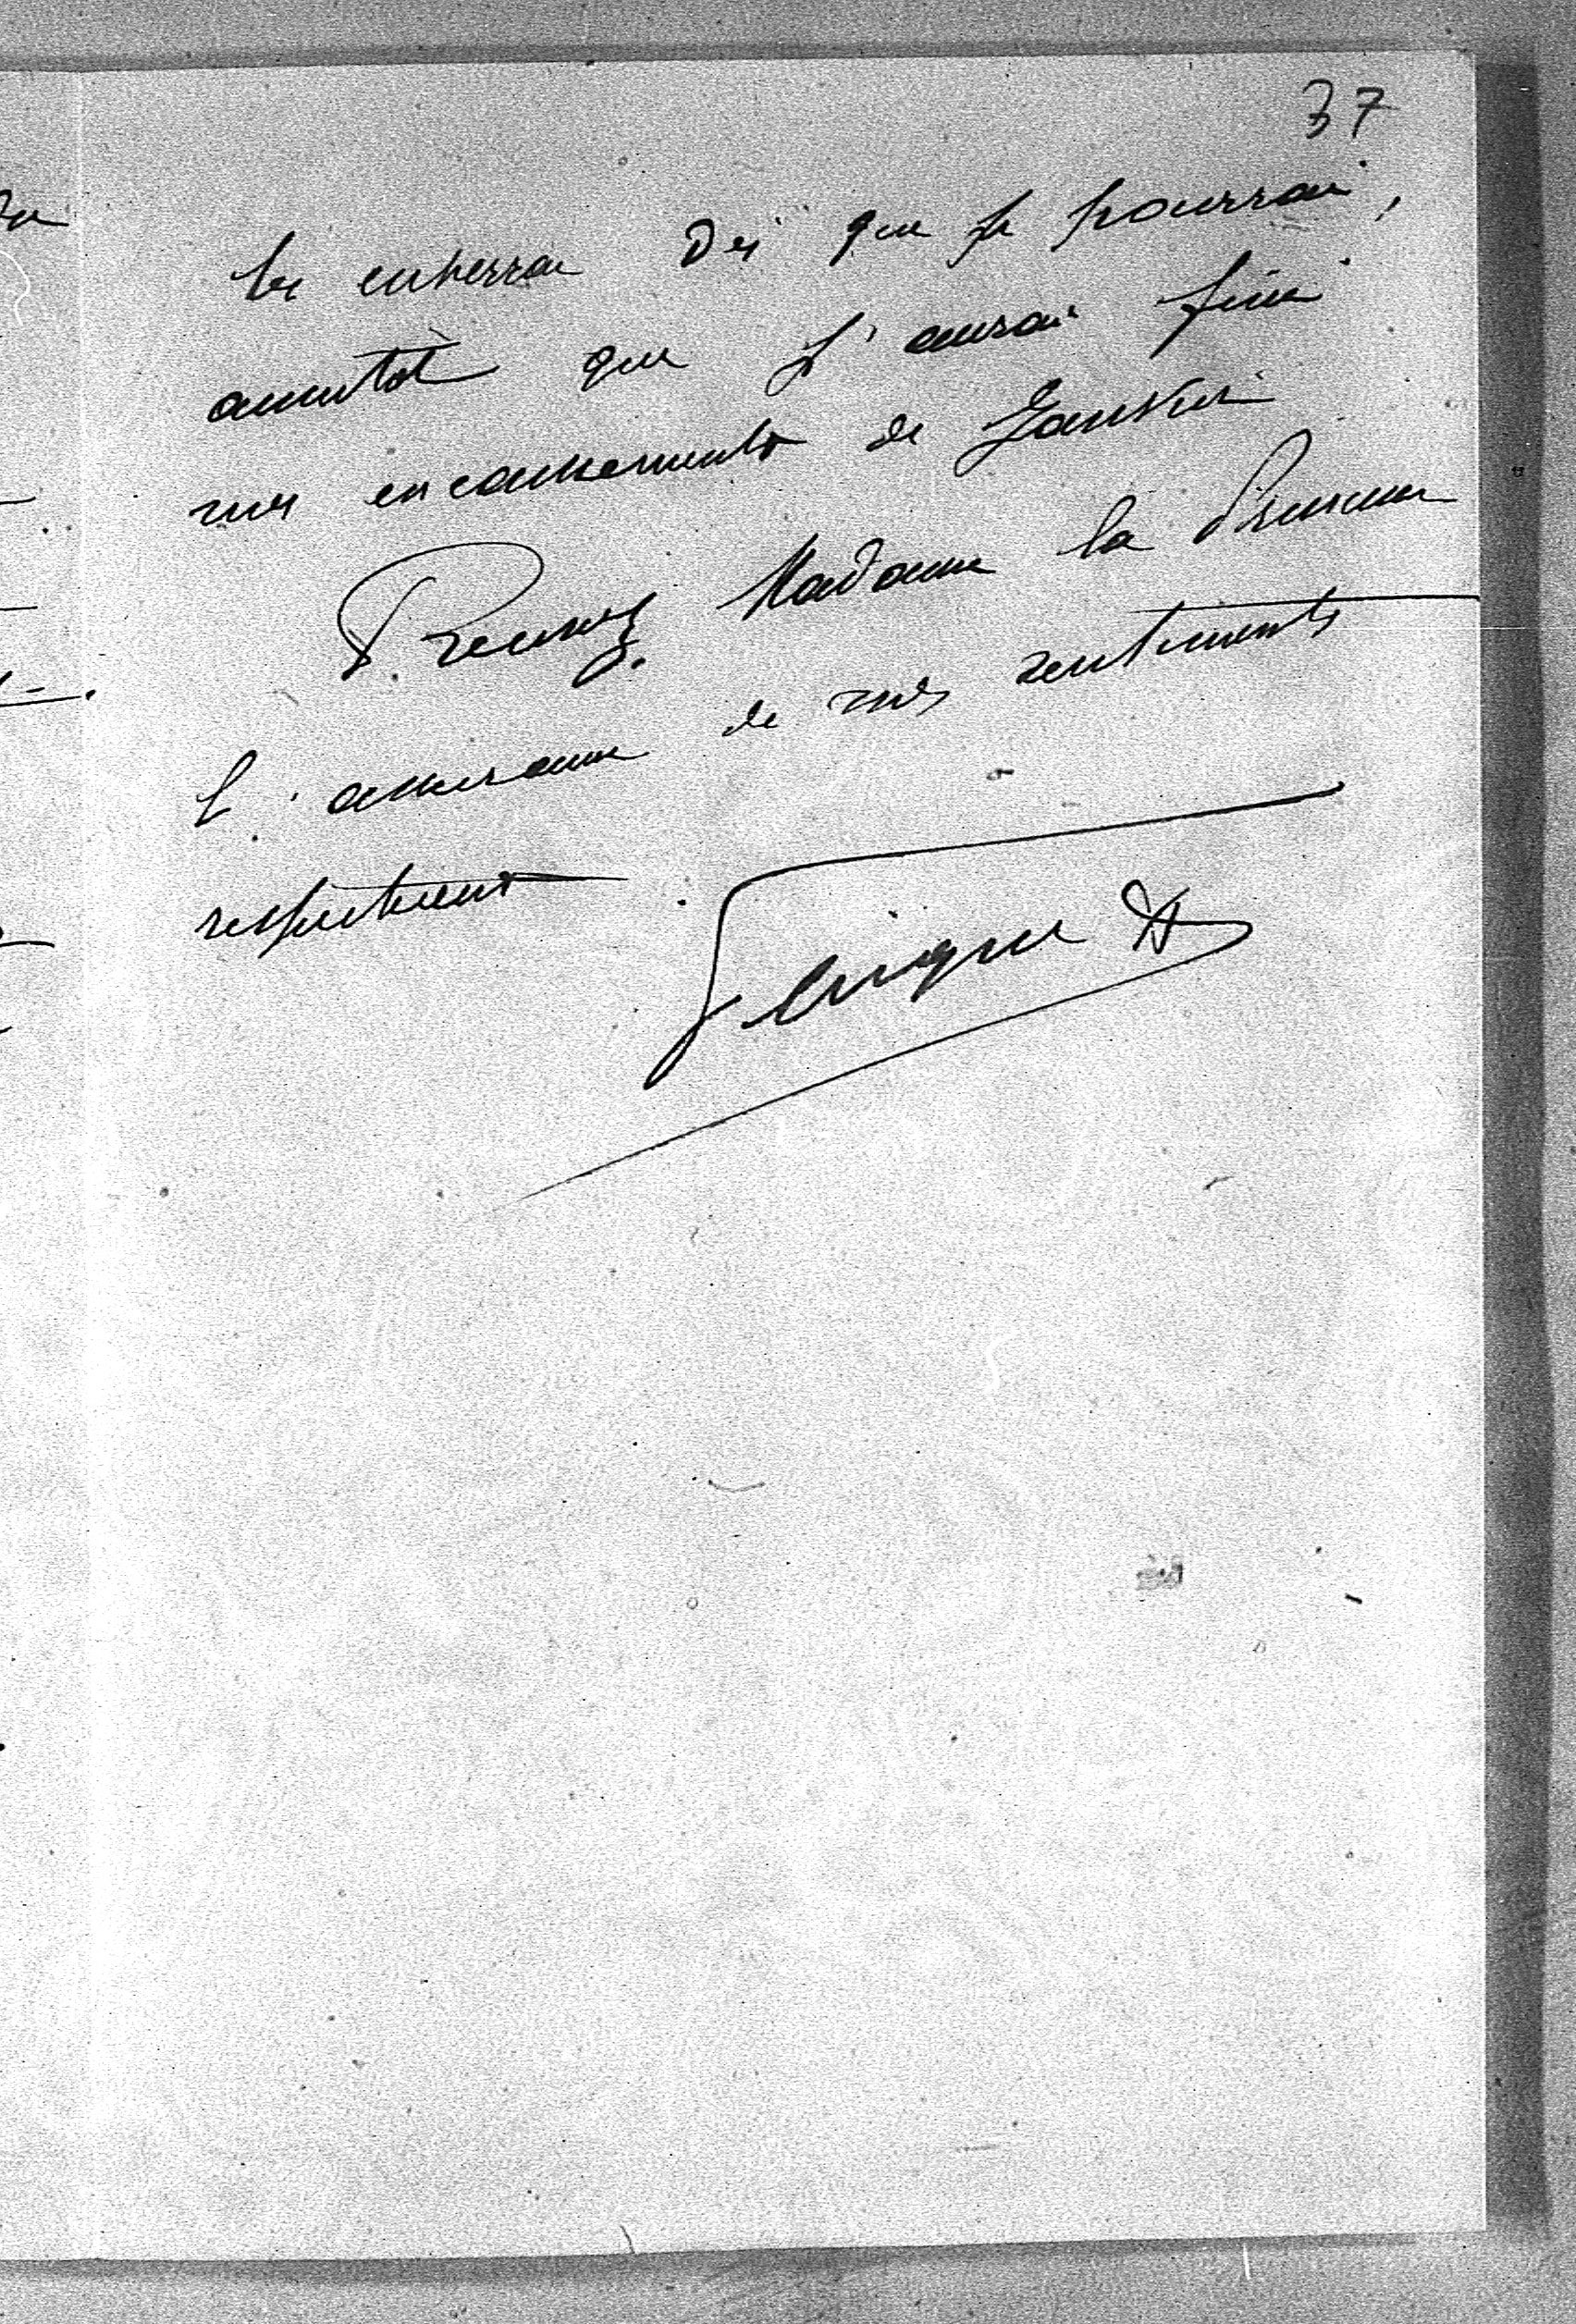 37
les enverrai dès que je pourrai,
aussitôt que j'aurai fini
mes encaissements de Janvier
Recevez Madame la Princesse
l'assurance de mes sentiments
respectueux